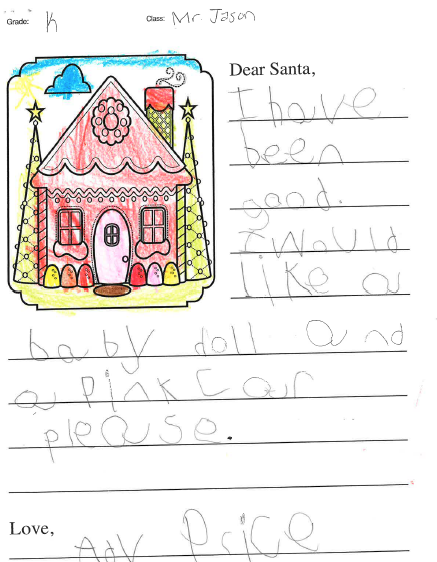 Grade: K Class: Mr. Jason
Dear Santa,
I have
been
good.
I would
like a
baby doll and
a pink car
please.
Love,
Ady Price